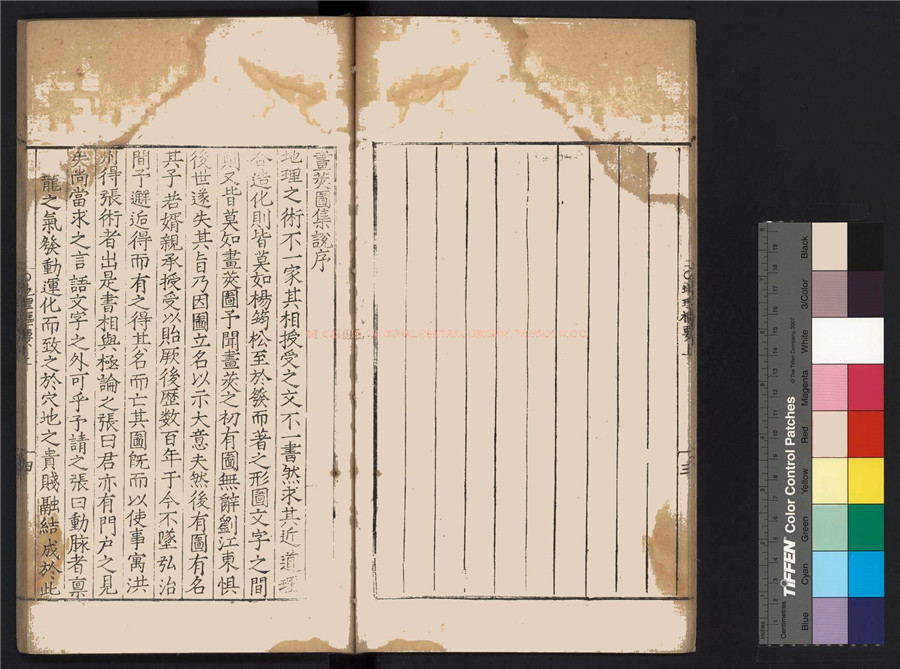 畫莢圖集說序
地理之術不一家其相授受之文不一書然求其近道理
合造化則皆莫如楊筠松至於發而著之形圖文字之間
則又皆莫如畫莢圖予聞畫莢之初有圖無辭劉江東懼
後世遂失其旨乃因圖立名以示大意夫然後有圖有名
其子若婿親承授受以貽厥後歷数百年于今不墜弘治
間予邂逅得而有之得其名而亡其圖旣而以使事寓洪
州得張術者出是書相與極論之張曰君亦有門户之見
矣尚當求之言語文字之外可乎予請之張曰動脉者禀
龍之氣發動運化而致之於穴地之貴賤融結成於此
四
三
TIFFEN Color Control Patches
© The Tiffen Company, 2007
Centimetres
Inches
Blue
Cyan
Green
Yellow
Red
Magenta
White
3/Color
Black